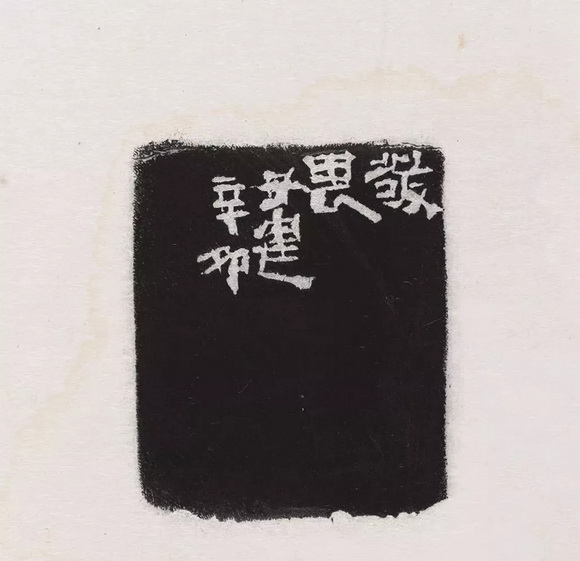 敬
畏
建
辛卯